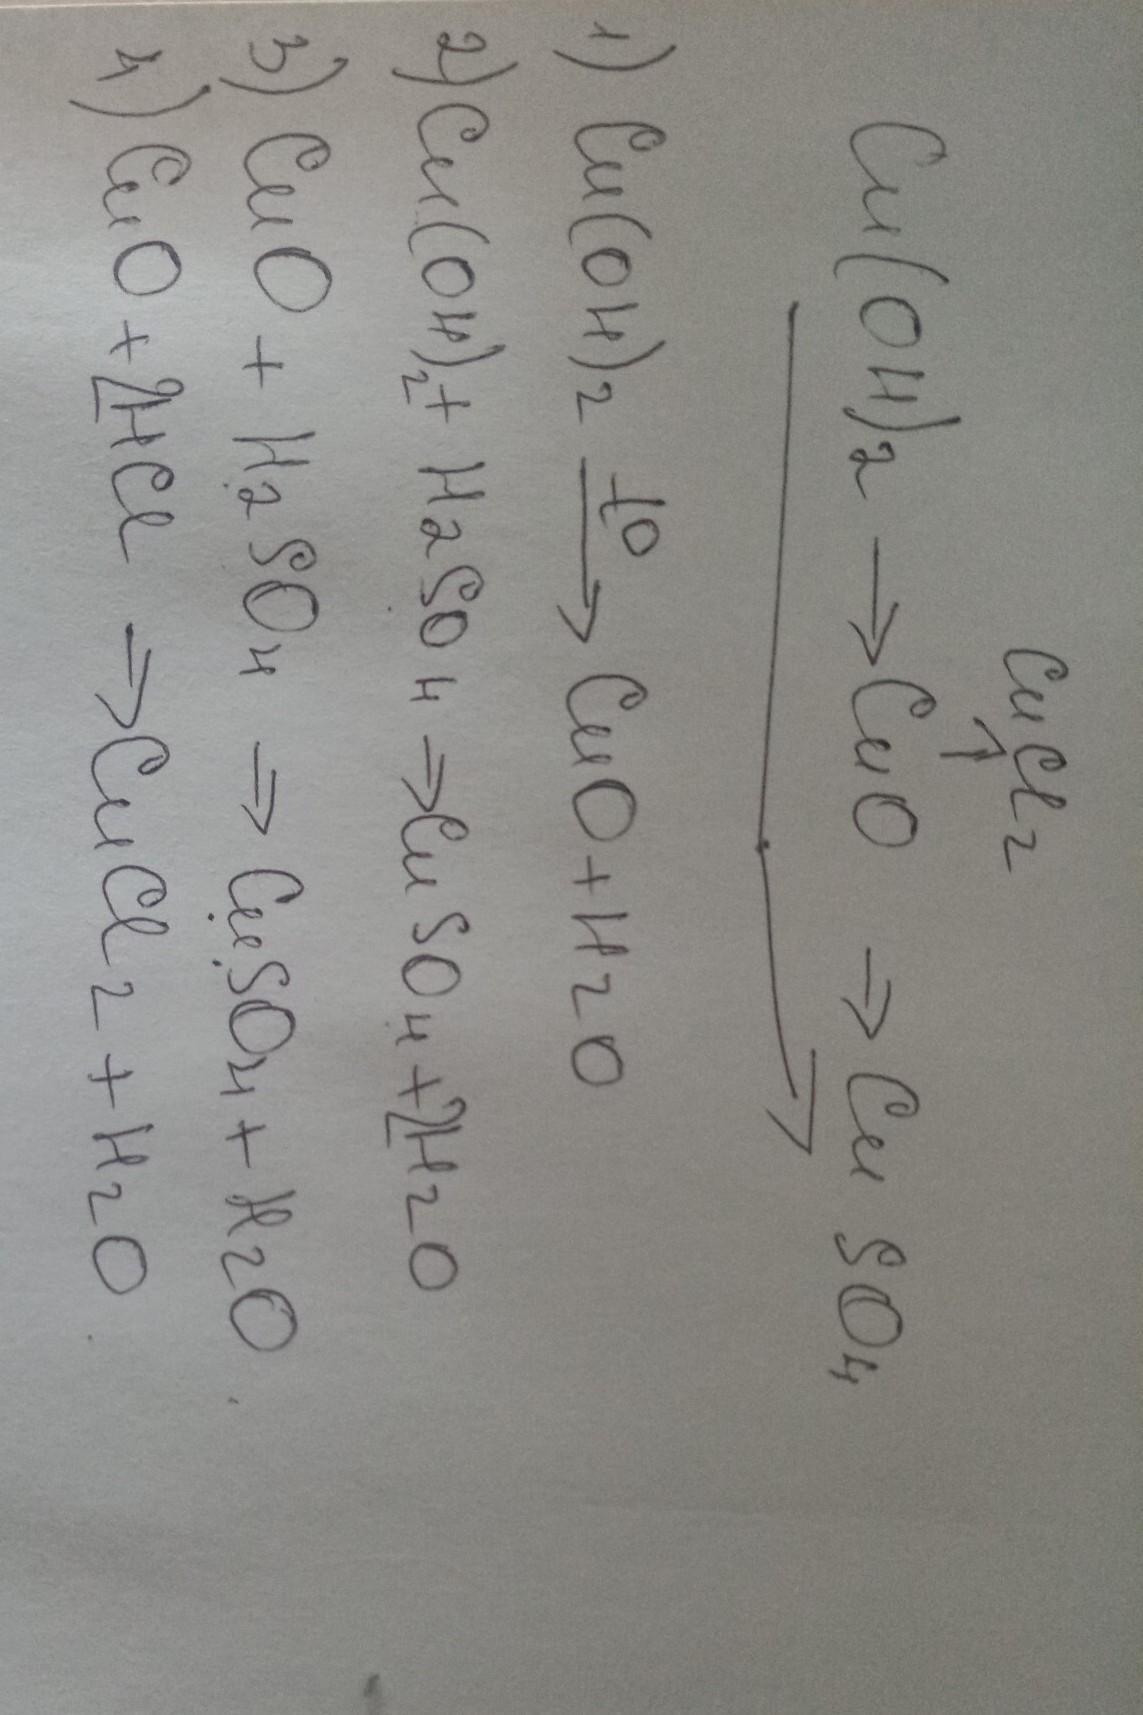 CuCl2
↑
Cu(OH)2 → CuO ⇒ CuSO4
1) Cu(OH)2 →t° CuO + H2O
2) Cu(OH)2 + H2SO4 ⇒ CuSO4 + 2H2O
3) CuO + H2SO4 ⇒ CuSO4 + H2O
4) CuO + 2HCl ⇒ CuCl2 + H2O